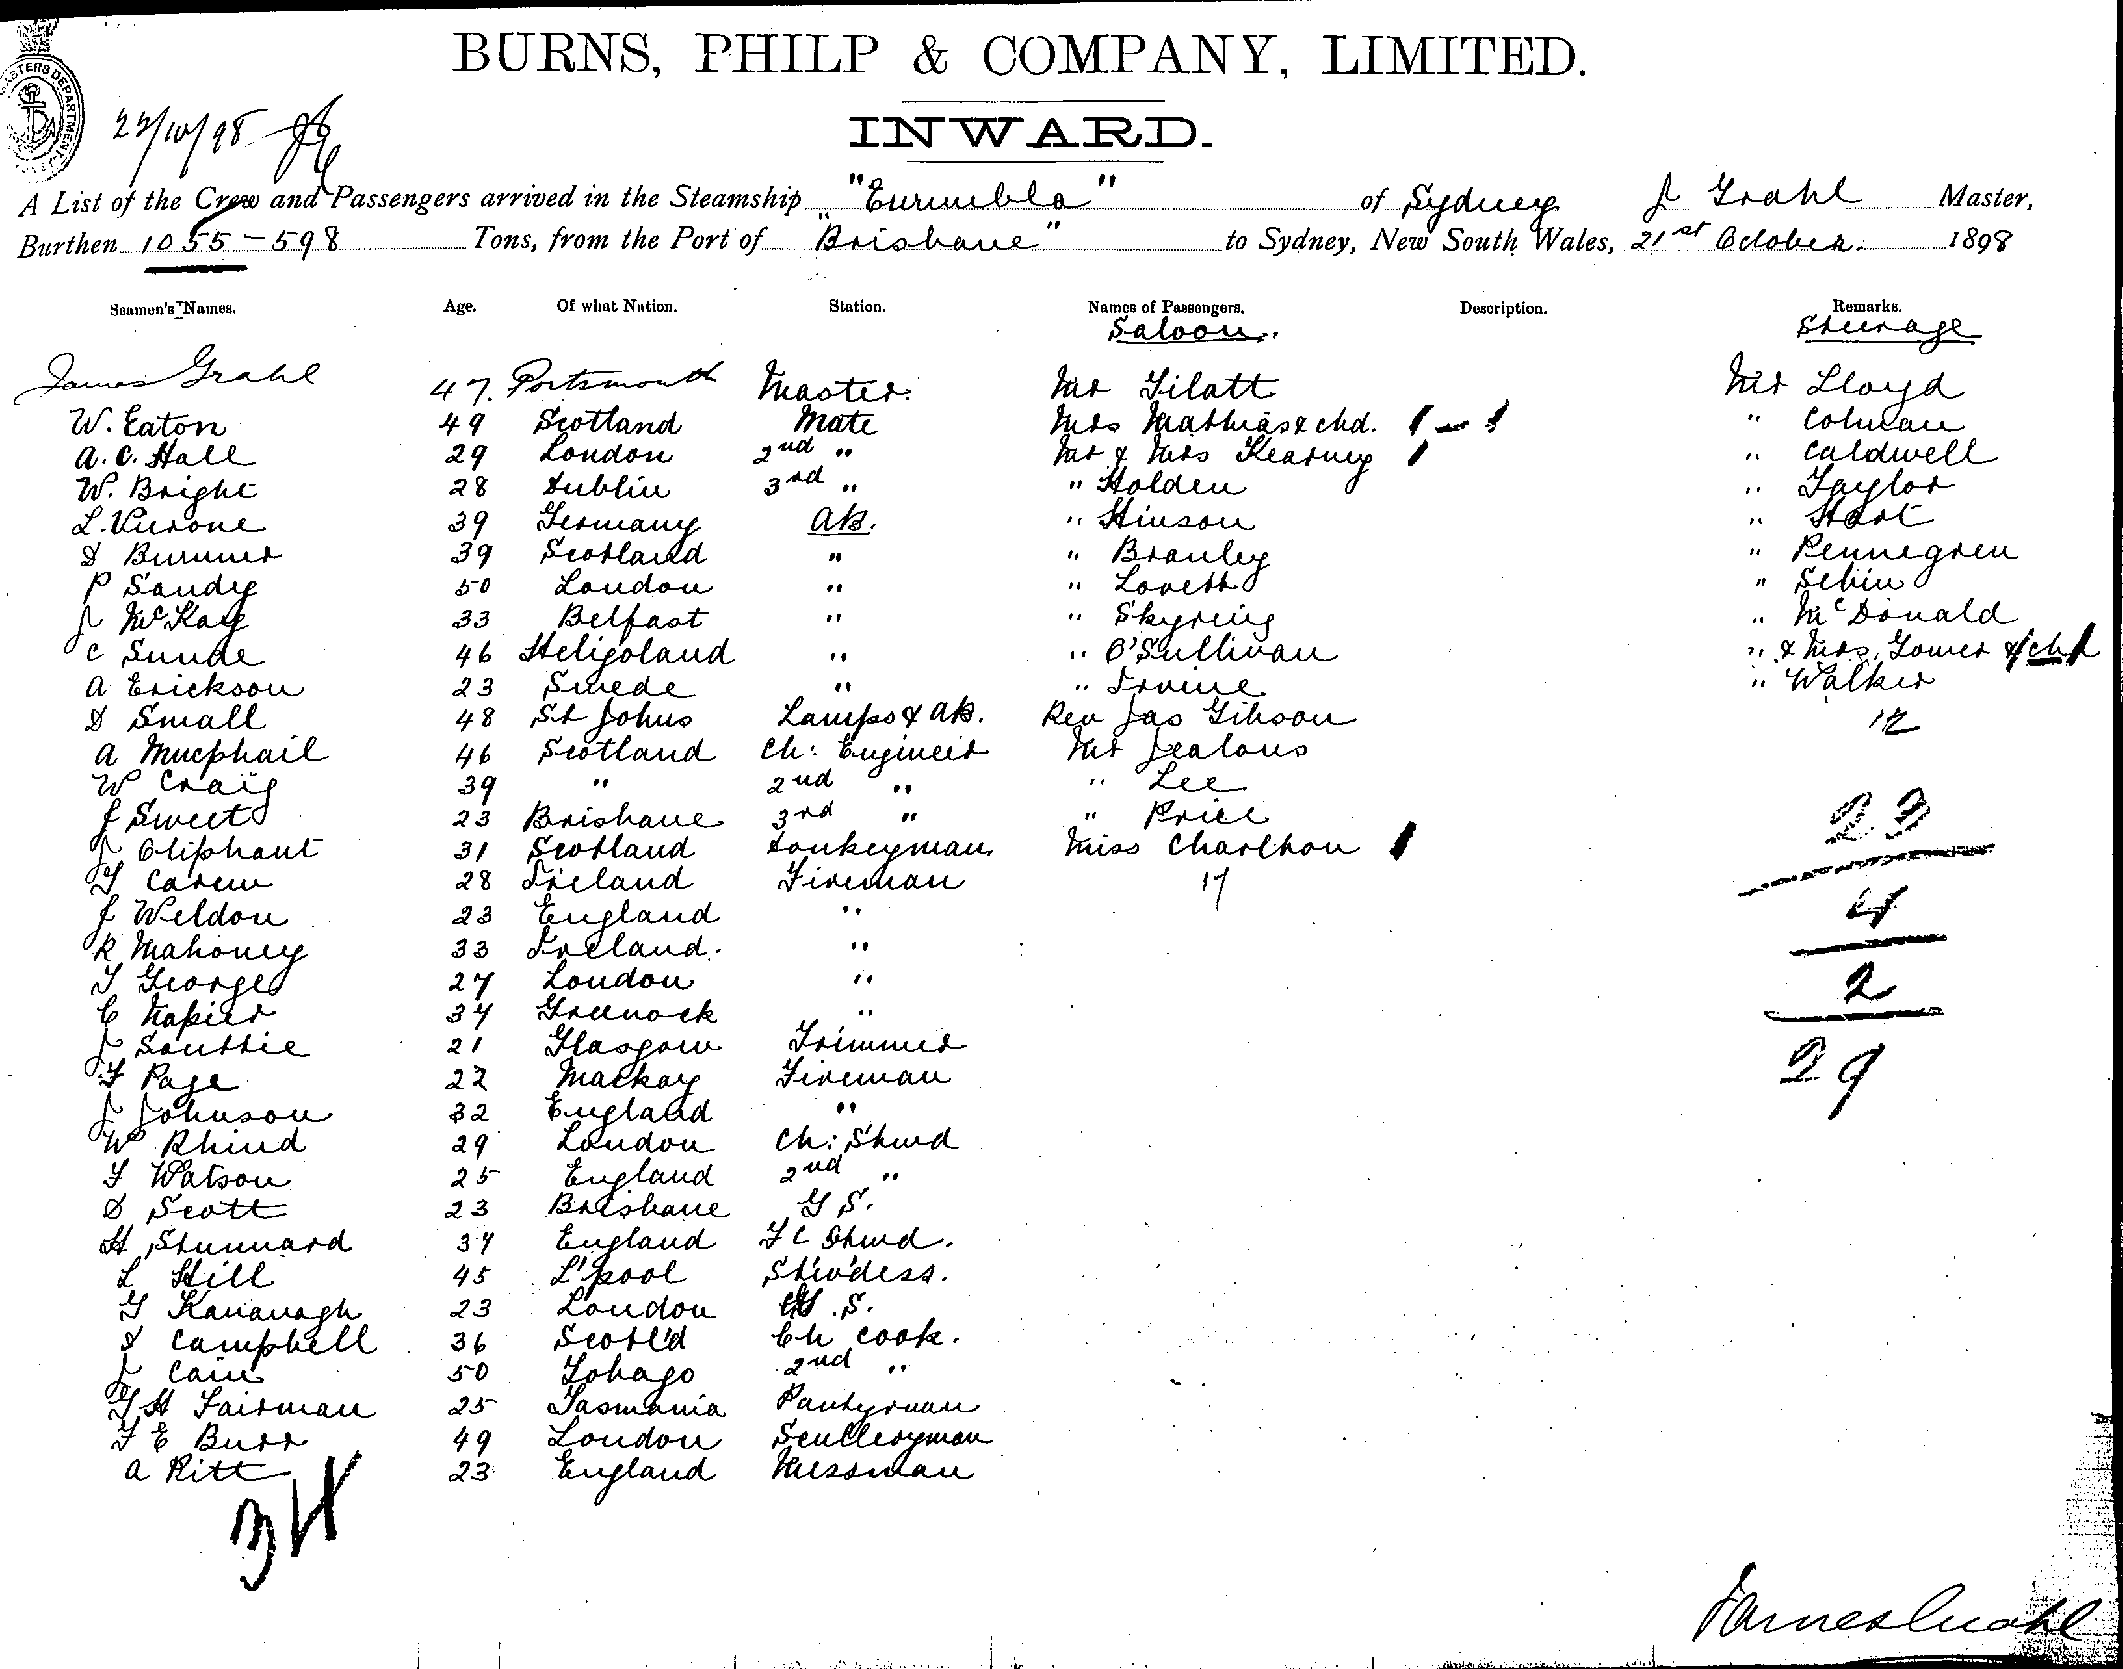 BURNS, PHILP & COMPANY, LIMITED.
INWARD.
22/10/98
A List of the Crew and Passengers arrived in the Steamship "Eurimbla" of Sydney J Grahl Master,
Burthen 1055-598 Tons, from the Port of "Brisbane" to Sydney, New South Wales, 21st October. 1898
Seamen's Names. Age. Of what Nation. Station. Names of Passengers. Description. Remarks.
Saloon. Steerage
James Grahl 47. Portsmouth Master. Mr Gilatt Mr Lloyd
W. Eaton 49 Scotland Mate Mrs Mathias & chd. 1 - 1 " Colman
A. C. Hall 29 London 2nd " Mr & Mrs Kearney 1 " Caldwell
W. Bright 28 Dublin 3rd " " Holden " Taylor
L. Vurone 39 Germany AB. " Hinson " Hart
D Bummer 39 Scotland " " Branley " Pennegren
P Sandy 50 London " " Lovett " Sebin
J McKay 33 Belfast " " Skyring " McDonald
C Sunde 46 Heligoland " " O'Sullivan " & Mrs Gomer & ch 1
A Erickson 23 Swede " " Irvine " Walker
D Small 48 St Johns Lamps & AB. Rev Jas Gibson 12
A Macphail 46 Scotland Ch: Engineer Mr Jealous
W Craig 39 " 2nd " " Lee
J Sweet 23 Brisbane 3rd " " Price 23
J Oliphant 31 Scotland Donkeyman Miss Charlton 1
T Carew 28 Ireland Fireman 17
J Weldon 23 England " 4
R Mahoney 33 Ireland. "
T George 27 London " 2
C Napier 34 Greenock "
J Souttie 21 Glasgow Trimmer 29
F Page 22 Mackay Fireman
J Johnson 32 England "
W Rhind 29 London Ch: Stwd
F Watson 25 England 2nd "
D Scott 23 Brisbane G S.
H Stunnard 34 England F C Stwd.
L Hill 45 L'pool Stw'dess.
G Kavanagh 23 London S.
D Campbell 36 Scotl'd Ch Cook.
J Cain 50 Tobago 2nd "
T H Fairman 25 Tasmania Pantryman
F E Burr 49 London Sculleryman
A Pitt 23 England Messman
34
James Grahl